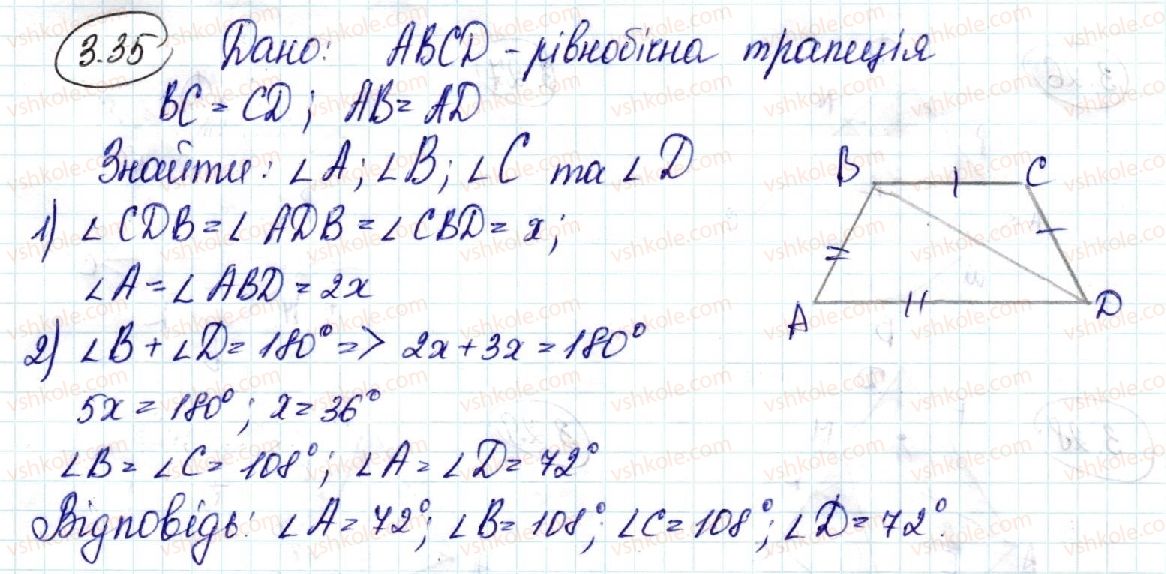 3.35 Дано: ABCD - рівнобічна трапеція
BC = CD; AB = AD
Знайти: ∠A; ∠B; ∠C та ∠D
1) ∠CDB = ∠ADB = ∠CBD = x;
∠A = ∠ABD = 2x
2) ∠B + ∠D = 180° => 2x + 3x = 180°
5x = 180°; x = 36°
∠B = ∠C = 108°; ∠A = ∠D = 72°
Відповідь: ∠A = 72°; ∠B = 108°; ∠C = 108°; ∠D = 72°.
B C
A D
vshkole.com